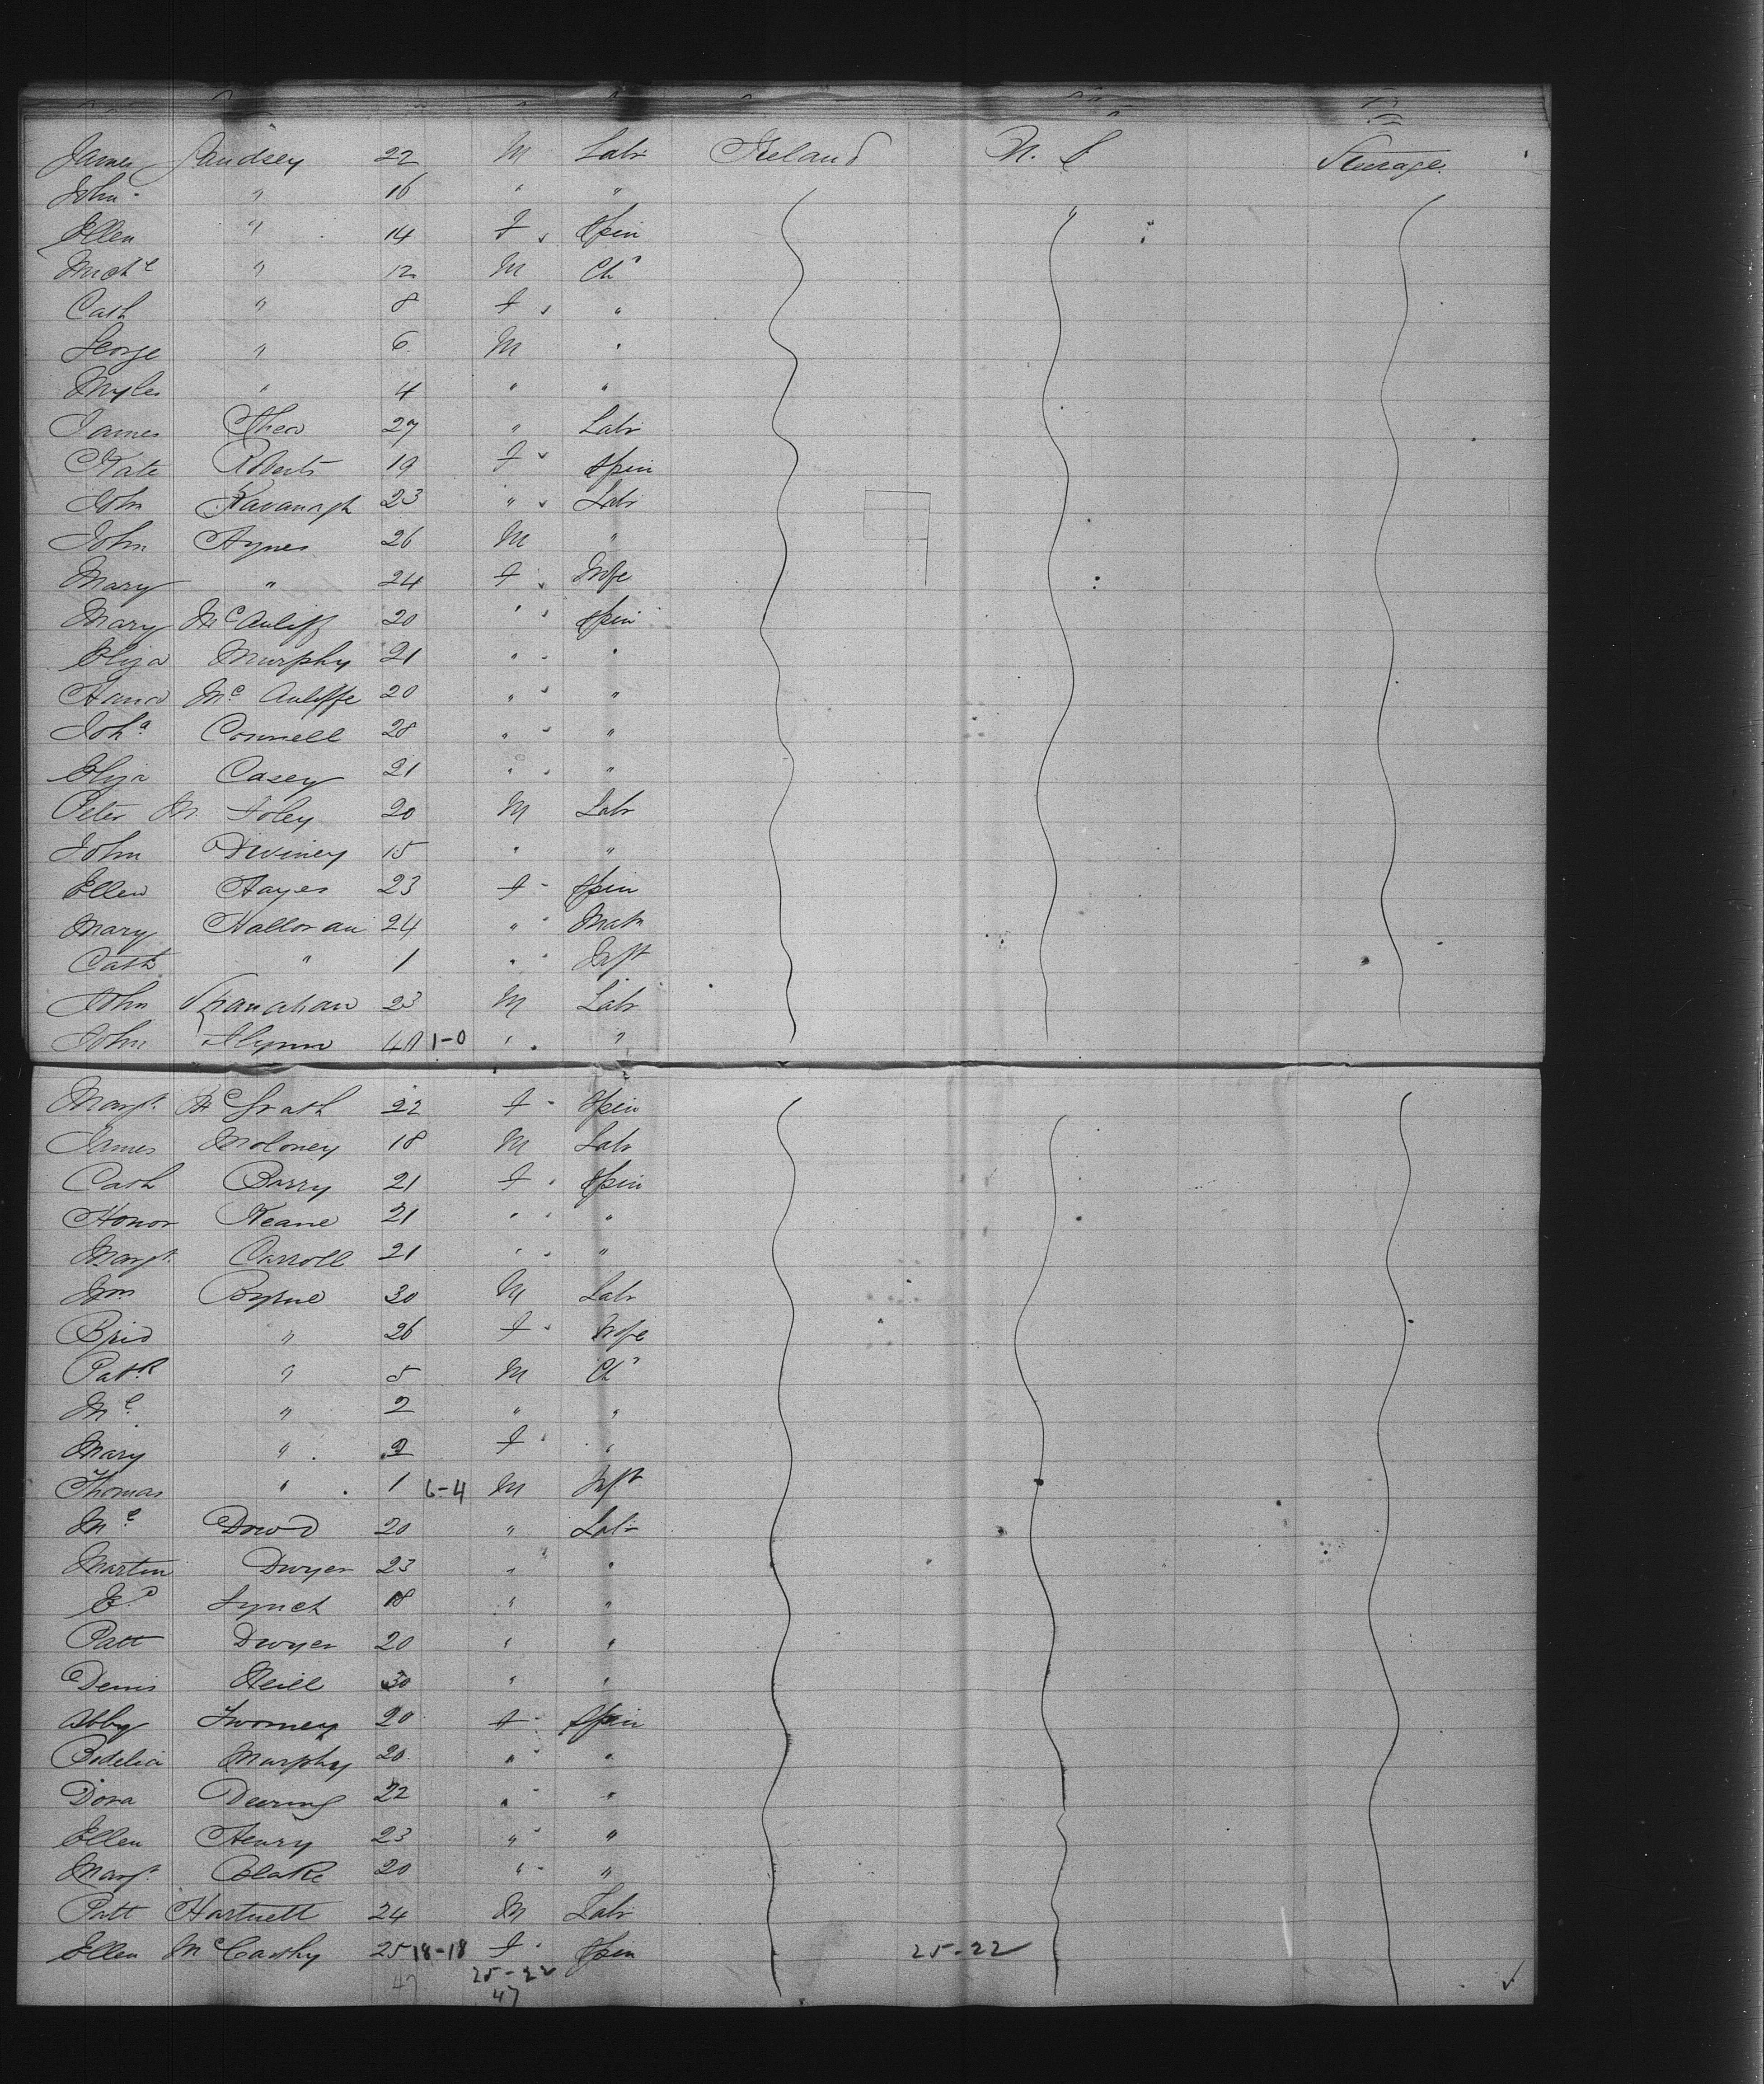 James Landsey 22 M Labr Ireland U.S. Steerage
John " 16 " "
Ellen " 14 F Spin
Michl " 12 M Chd
Cath " 8 F "
George " 6 M "
Myles " 4 " "
James Shea 27 " Labr
Kate Roberts 19 F Spin
John Kavanagh 23 " Labr
John Hynes 26 M "
Mary " 24 F Wife
Mary McAuliff 20 " Spin
Eliza Murphy 21 " "
Hana McAuliffe 20 " "
Joha Connell 28 " "
Eliza Casey 21 " "
Peter M Foley 20 M Labr
John Diviney 15 " "
Ellen Hayes 23 F Spin
Mary Halloran 24 " Matn
Cath " 1 " Inft
John Shanahan 23 M Labr
John Flynn 40 1-0 " "
Margt McGrath 22 F Spin
James Moloney 18 M Labr
Cath Barry 21 F Spin
Honor Keane 21 " "
Margt Carroll 21 " "
Wm Byrne 30 M Labr
Brid " 26 F Wife
Patk " 5 M Chd
Ml " 2 " "
Mary " 2 F "
Thomas " 1 6-4 M Inft
Ml Dowd 20 " Labr
Martin Dwyer 23 " "
Ed Lynch 18 " "
Patt Dwyer 20 " "
Denis Neill 30 " "
Abby Twomey 20 F Spin
Bedelia Murphy 20 " "
Dora Deering 22 " "
Ellen Henry 23 " "
Margt Blake 20 " "
Patt Hartnett 24 M Labr
Ellen McCarthy 25 18-18 F Spin 25-22
47 25-22
47